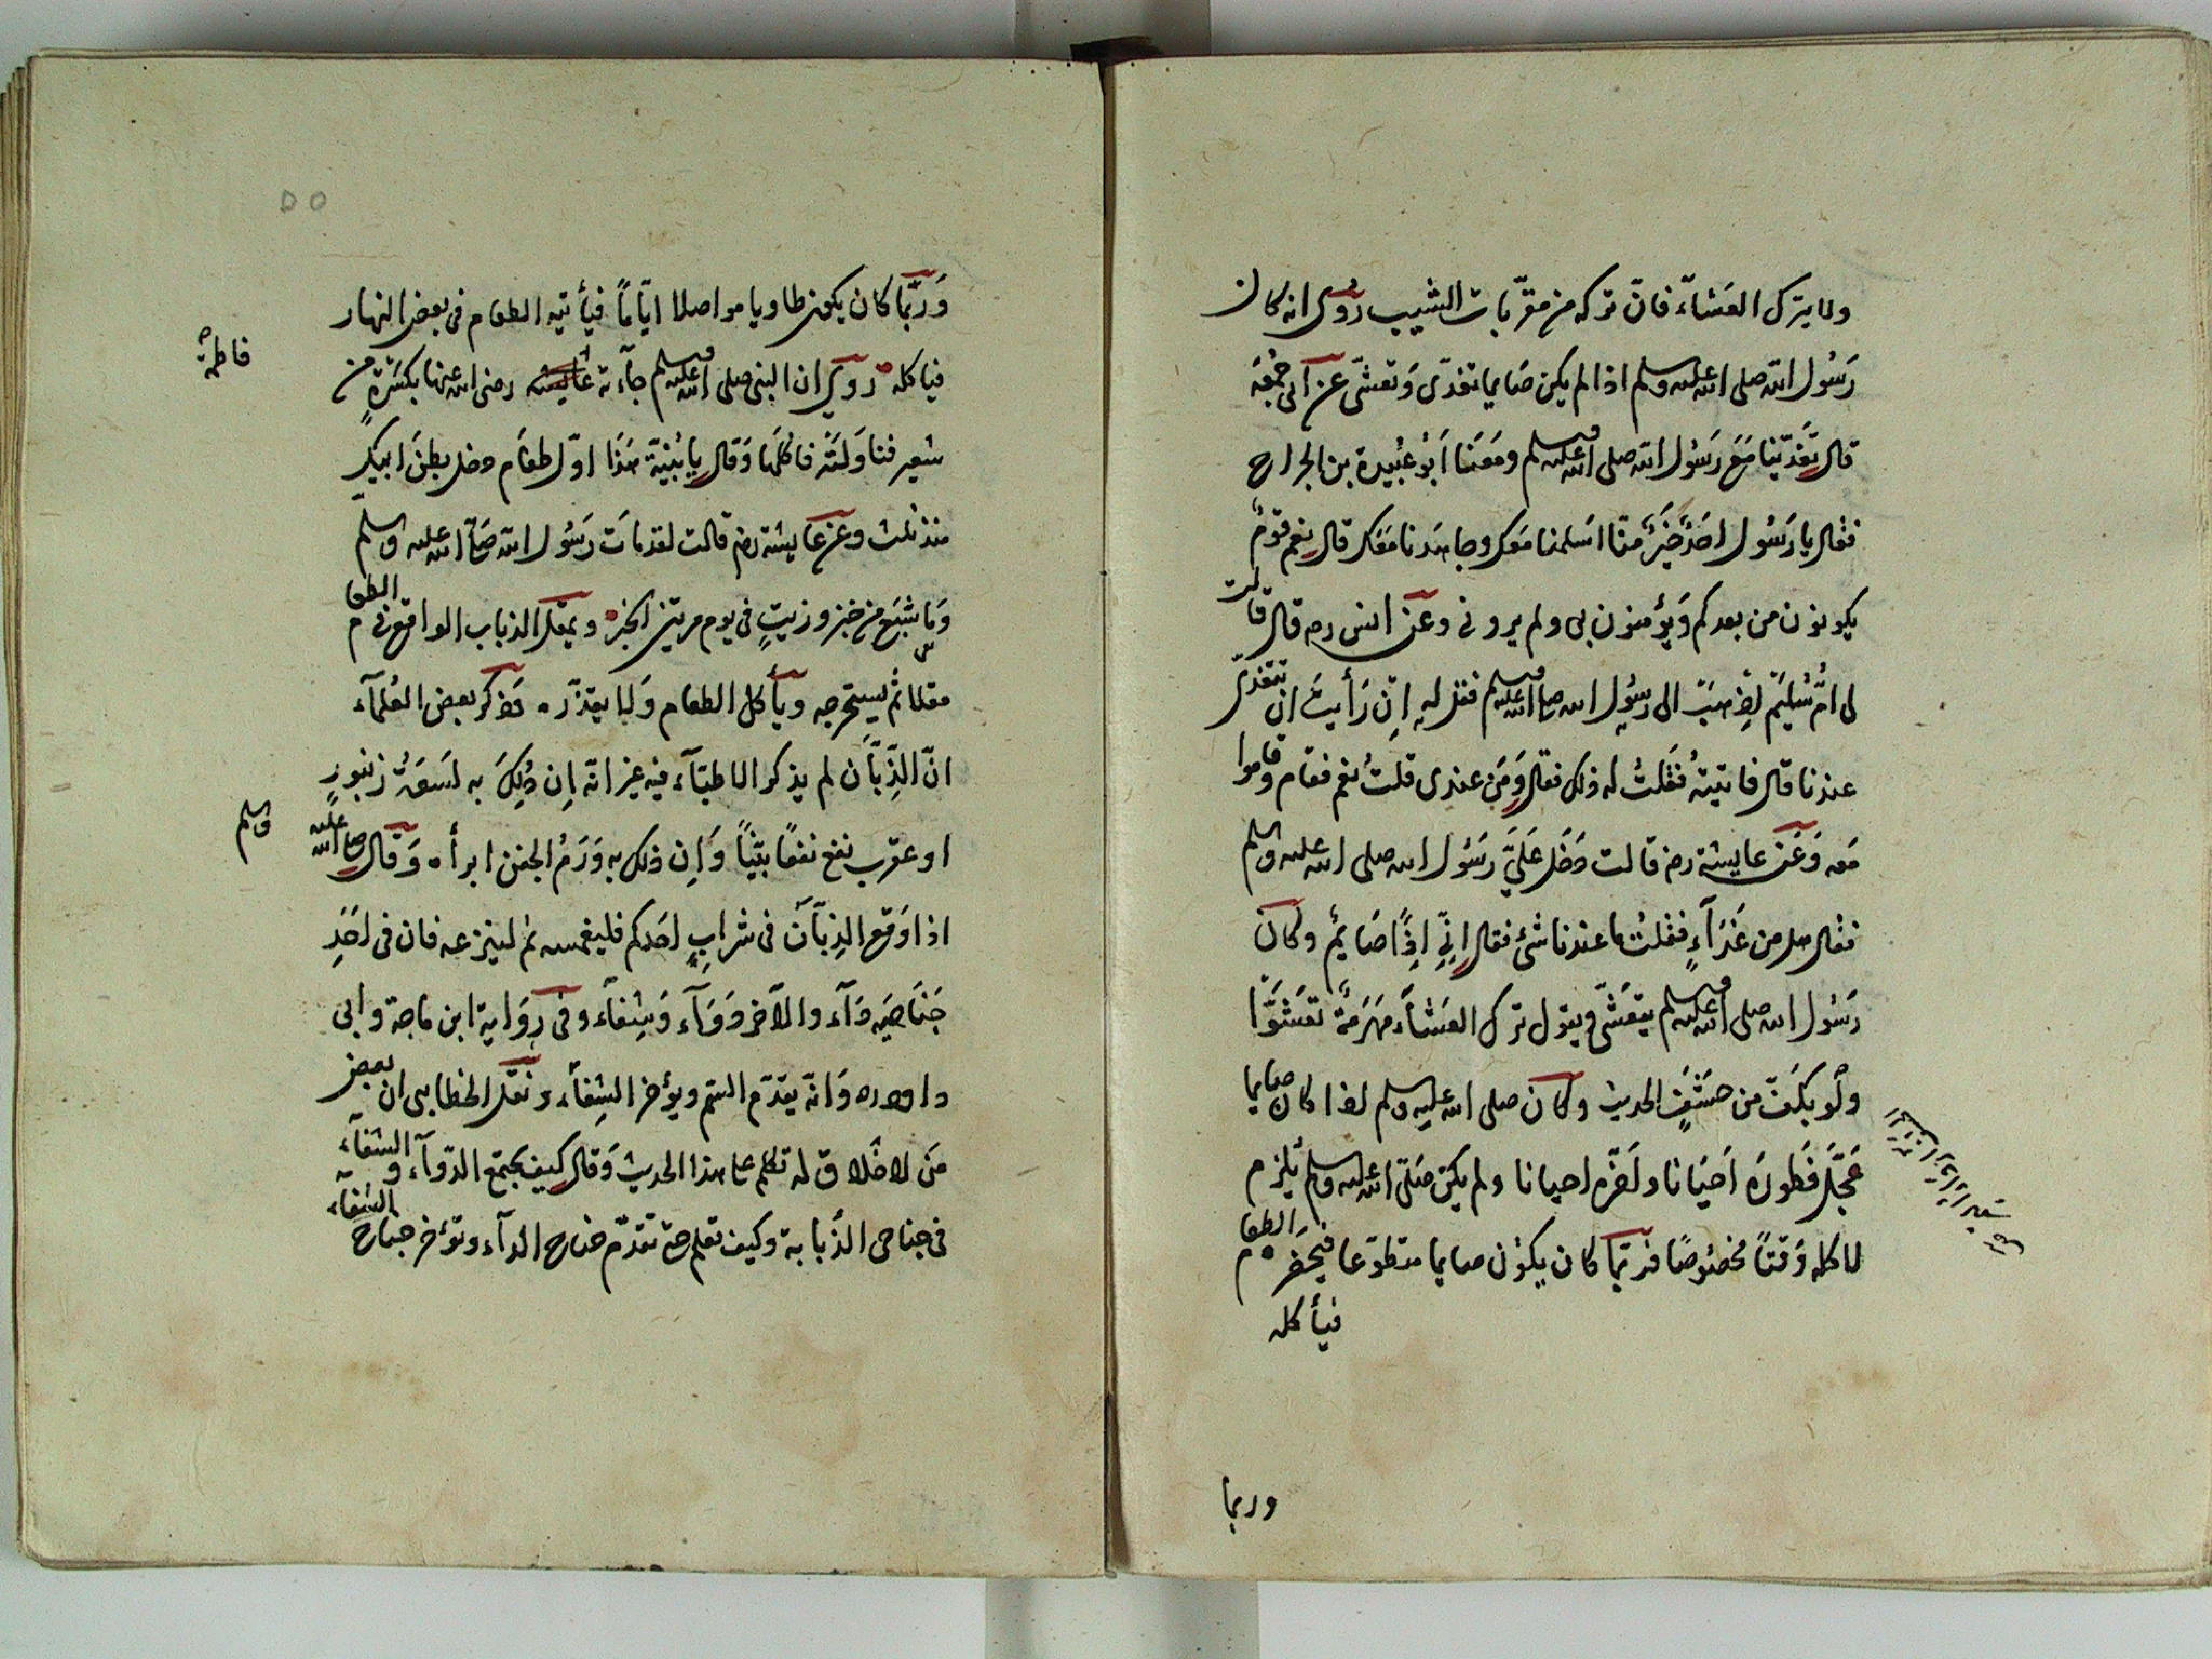 ولا يترك العَشاءَ فانّ تركه من مقرّبات الشيب رُوى انه كان
رَسُول الله صلى الله عليه وسلم اذا لم يكن صَايما تغدّى وَتعشّى عن ابى جُمْعَة
قال تَغَدّينا مَعَ رَسُول الله صلى الله عليه وسلم ومَعَنا اَبُو عُبَيدة بن الجراح
فقال يا رَسُول احَدٌ خَيرٌ منّا اسَلمنا مَعك وجاهَدنا مَعَك قال نعم قومٌ
يكونون من بعدكم وَيؤمنون بى ولم يرونى وعَن انس رم قال قالت
لى امُّ سُليَم اِذهَب الى رسُول الله صلى الله عليه وسلم فقل له اِن رَأيتَ ان تتغدّى
عندنا قال فاتيتهُ فقلتُ له ذلك فقال وَمَن عندى قلتُ نعم فقام وقاموا
مَعه وَعَن عايشة رم قالت دَخَل عَلَيَّ رَسُول الله صلى الله عليه وسلم
فقال هل من غَدَآءٍ فقلتُ ما عندنا شئ فقال اِنّى اِذًا صَايمٌ وكان
رَسُول الله صلى الله عليه وسلم يتعَشّى ويقول ترك العَشاَء مَهرَمَةٌ تعَشوّا
ولَو بكَفّ من حَشَفٍ الحديث وكان صلى الله عليه وسلم اذا كان صايما
عَجَّل فَطورَه اَحيَانا واَخّره احيانا ولم يكن صَلّى الله عليه وسلم يُلزم
لاكله وَقتاً مخصُوصًا فربّما كان يكوُن صايما متطوّعا فيحضره الطعام
فيأكله
وربما
وَربَّما كان يكون طاويا مواصلا ايّاماً فيأتيه الطعام فى بعض النهار
فياكله روى ان النبى صلى الله عليه وسلم جآءته عايشه رضى الله عنها بكسَرةٍ من
فاطمة
شعير فناوَلَتْه فاكلَها وَقال يا بُنيّة هَذَا اوّل طعَام دخل بطنَ ابيك
منذ ثلث وعن عايشة رم قالت لقد مات رَسُول الله صلى الله عليه وسلم
وَما شبَعَ من خبز وزيتٍ فى يوم مرتين الخبز ويمقل الذباب الواقع فى الطعام
مقلا ثم يستخرجه ويأكل الطعام وَلا يقذّره وذكر بعض العُلمآء
انّ الذِّبَّان لم يذكر الاطبّآء فيه غير انّه اِن دُلِكَ به لسَعَةُ زنبورٍ
او عقرب نفع نفعًا بيّناً وَاِن ذلك به وَرَمُ الجفن ابرأه وَقال صلى الله عليه وسلم
اذا وَقع الذِبّآن فى شرابِ احَدكم فليغمسه ثم لينزعه فان فى احَدِ
جَنَاحَيه دَآء والآخر دَوَآء وَشِفاَء وفى رِوَاية ابن ماجة وابى
داود ره وَانّه يقدّم السّم ويؤخر الشِفاَء ونقل الخطابى ان بعض
مَن لا خَلاق له تكلم على هذا الحديث وَقال كيف يجتمع الدّوآء والشفآء
فى جناحى الذّبابة وكيف تعلم حتى تقدّم جناح الدآء وتؤخر جناح الشفآء